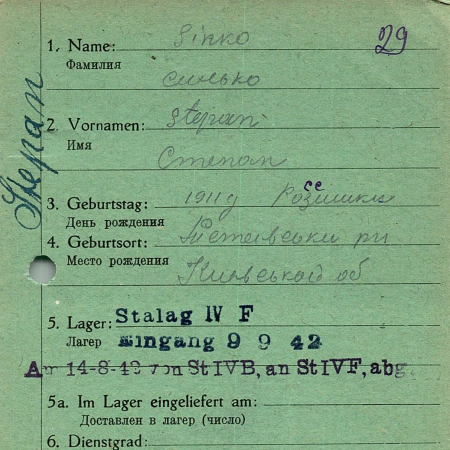 29
1. Name: Sinko
Фамилия
синько
Stepan
2. Vornamen: Stepan
Имя
Степан
3. Geburtstag: 1911 д
День рождения
4. Geburtsort:
Место рождения
об
5. Lager: Stalag IV F
Лагер Eingang 9 9 42
14-8-42 von St IVB, an St IVF, abg.
5a. Im Lager eingeliefert am:
Доставлен в лагер (число)
6. Dienstgrad: